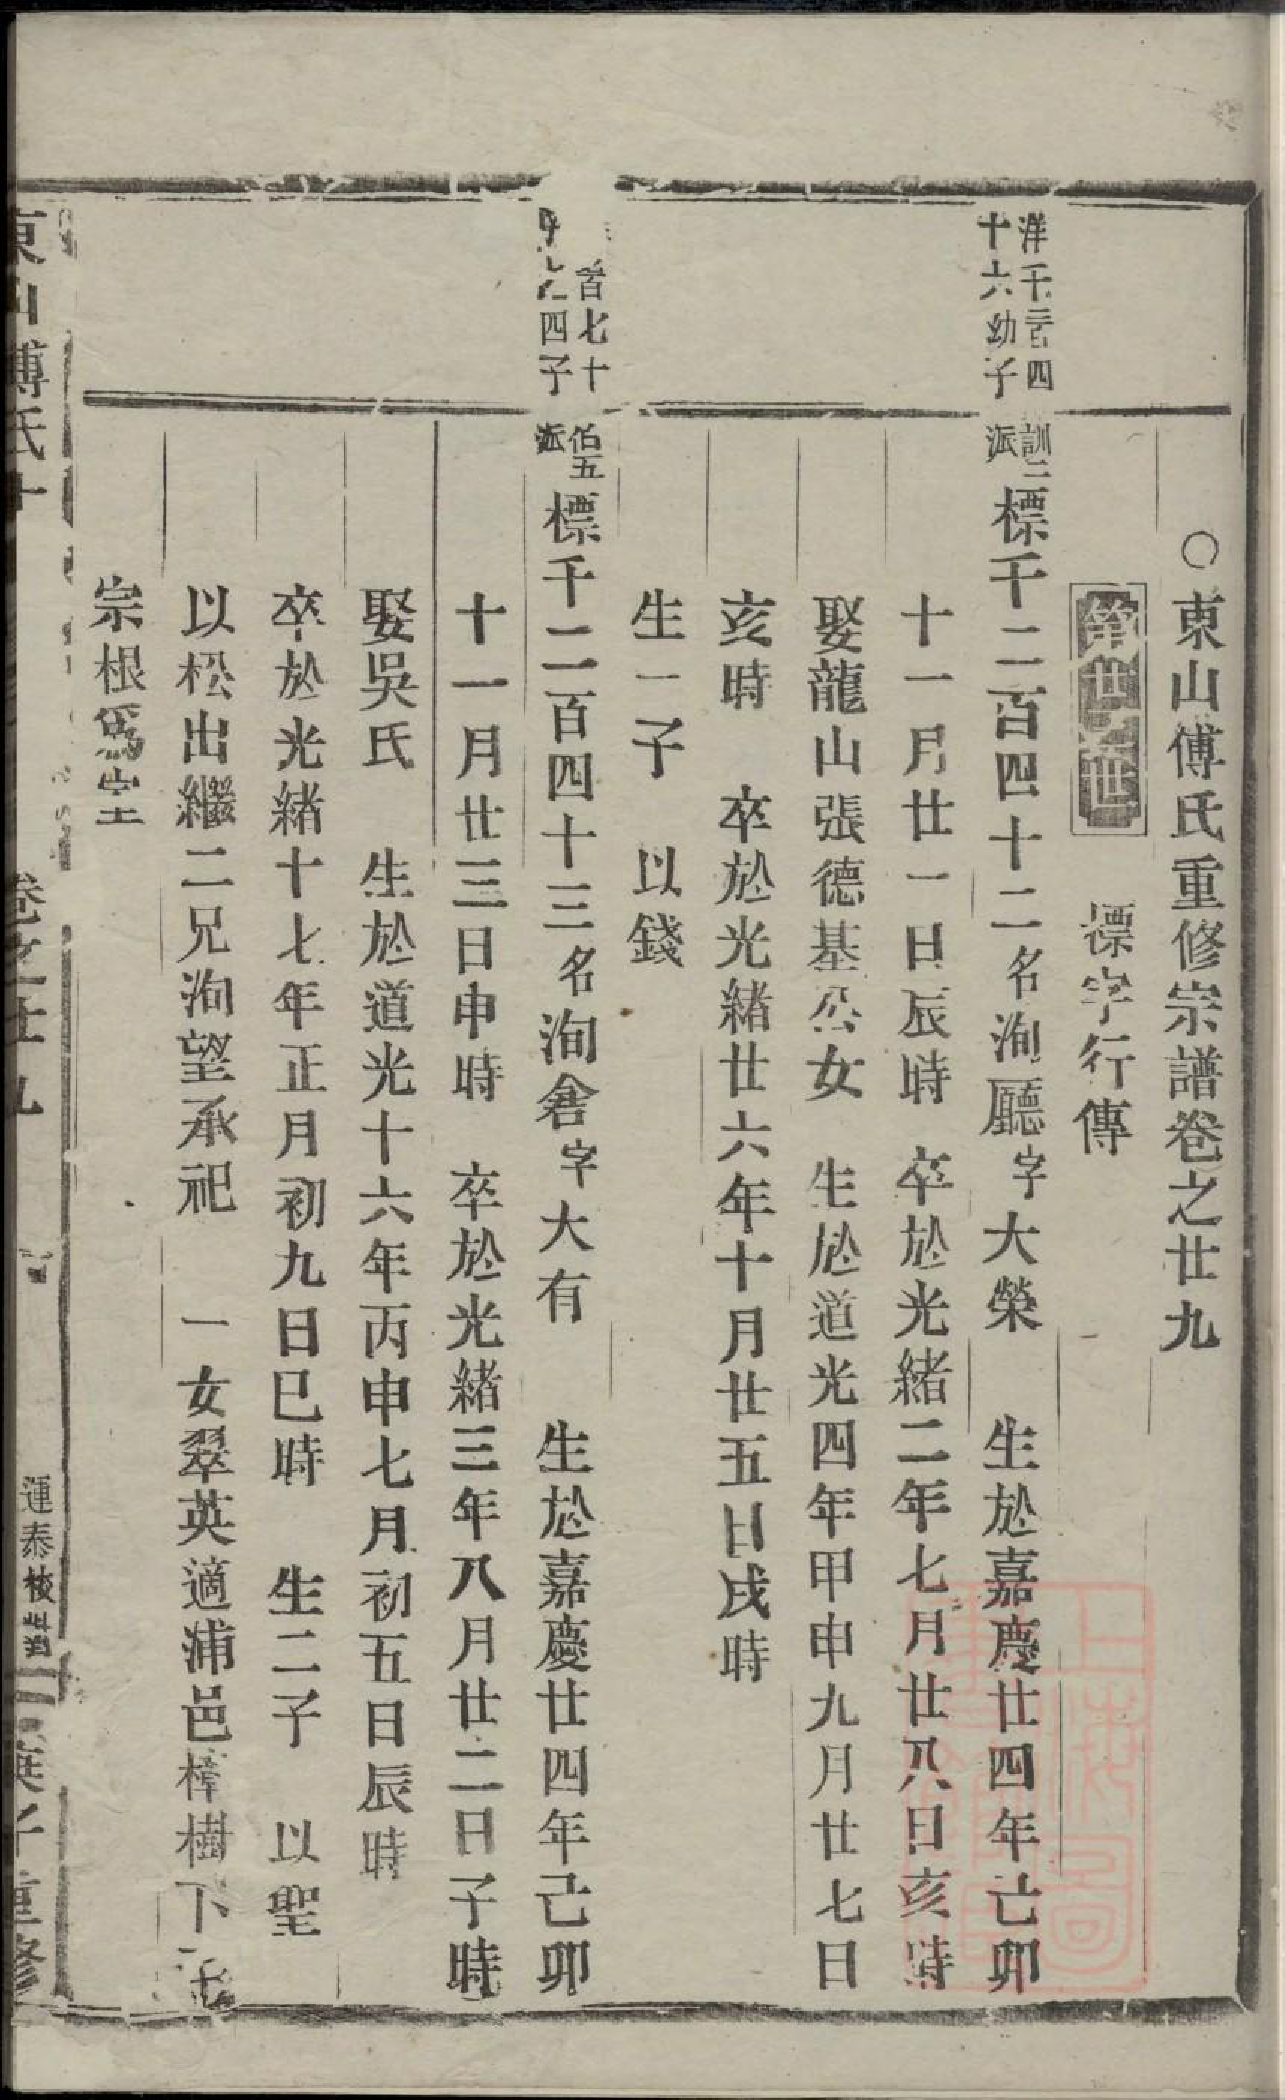 ○東山傅氏重修宗譜卷之廿九
標字行傳
洋千二百四
十六幼子
訓二
派
標千二百四十二名洵廳字大榮 生於嘉慶廿四年己卯
十一月廿一日辰時 卒於光緒二年七月廿八日亥時
娶龍山張德基公女 生於道光四年甲申九月廿七日
亥時 卒於光緒廿六年十月廿五日戌時
生一子 以錢
百七十
四子
伯五
派
標千二百四十三名洵畣字大有 生於嘉慶廿四年己卯
十一月廿三日申時 卒於光緒三年八月廿二日子時
娶吳氏 生於道光十六年丙申七月初五日辰時
卒於光緒十七年正月初九日巳時 生二子 以聖
以松出繼二兄洵望承祀 一女翠英適浦邑樟樹下
宗根爲室
東山傅氏
卷之廿九
運泰校
重修